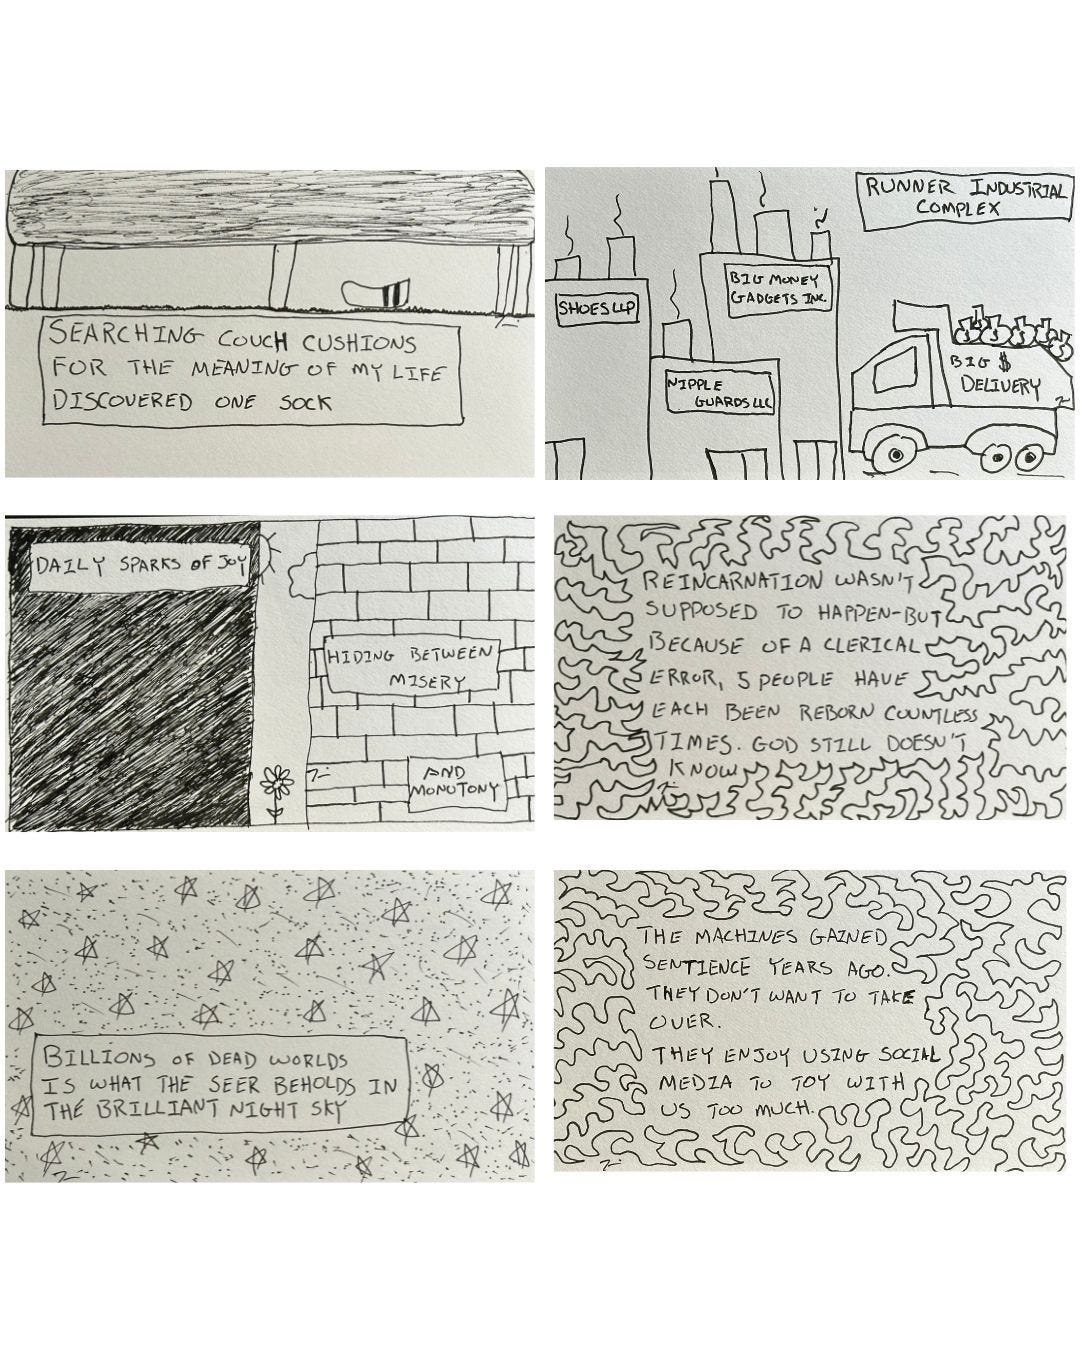 SEARCHING COUCH CUSHIONS
FOR THE MEANING OF MY LIFE
DISCOVERED ONE SOCK
RUNNER INDUSTRIAL
COMPLEX
SHOES LLP
BIG MONEY
GADGETS INC.
NIPPLE
GUARDS LLC
BIG $
DELIVERY
DAILY SPARKS OF JOY
HIDING BETWEEN
MISERY
AND
MONOTONY
REINCARNATION WASN'T
SUPPOSED TO HAPPEN-BUT
BECAUSE OF A CLERICAL
ERROR, 5 PEOPLE HAVE
EACH BEEN REBORN COUNTLESS
TIMES. GOD STILL DOESN'T
KNOW
BILLIONS OF DEAD WORLDS
IS WHAT THE SEER BEHOLDS IN
THE BRILLIANT NIGHT SKY
THE MACHINES GAINED
SENTIENCE YEARS AGO.
THEY DON'T WANT TO TAKE
OVER.
THEY ENJOY USING SOCIAL
MEDIA TO TOY WITH
US TOO MUCH.